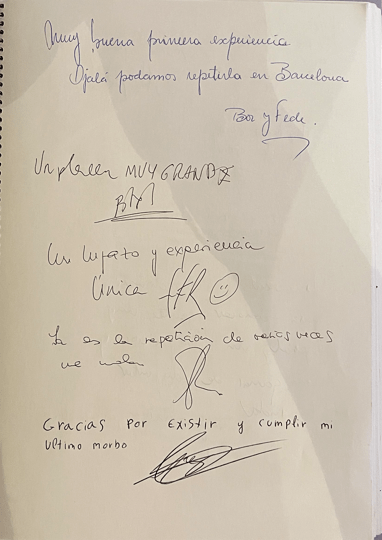 Muy buena primera experiencia
Ojalá podamos repetirla en Barcelona
Bor y Fede.
Un placer MUY GRANDE
Un lujazo y experiencia
Única
Ya es la repetición de varias veces
me mola
Gracias por existir y cumplir mi
ultimo morbo